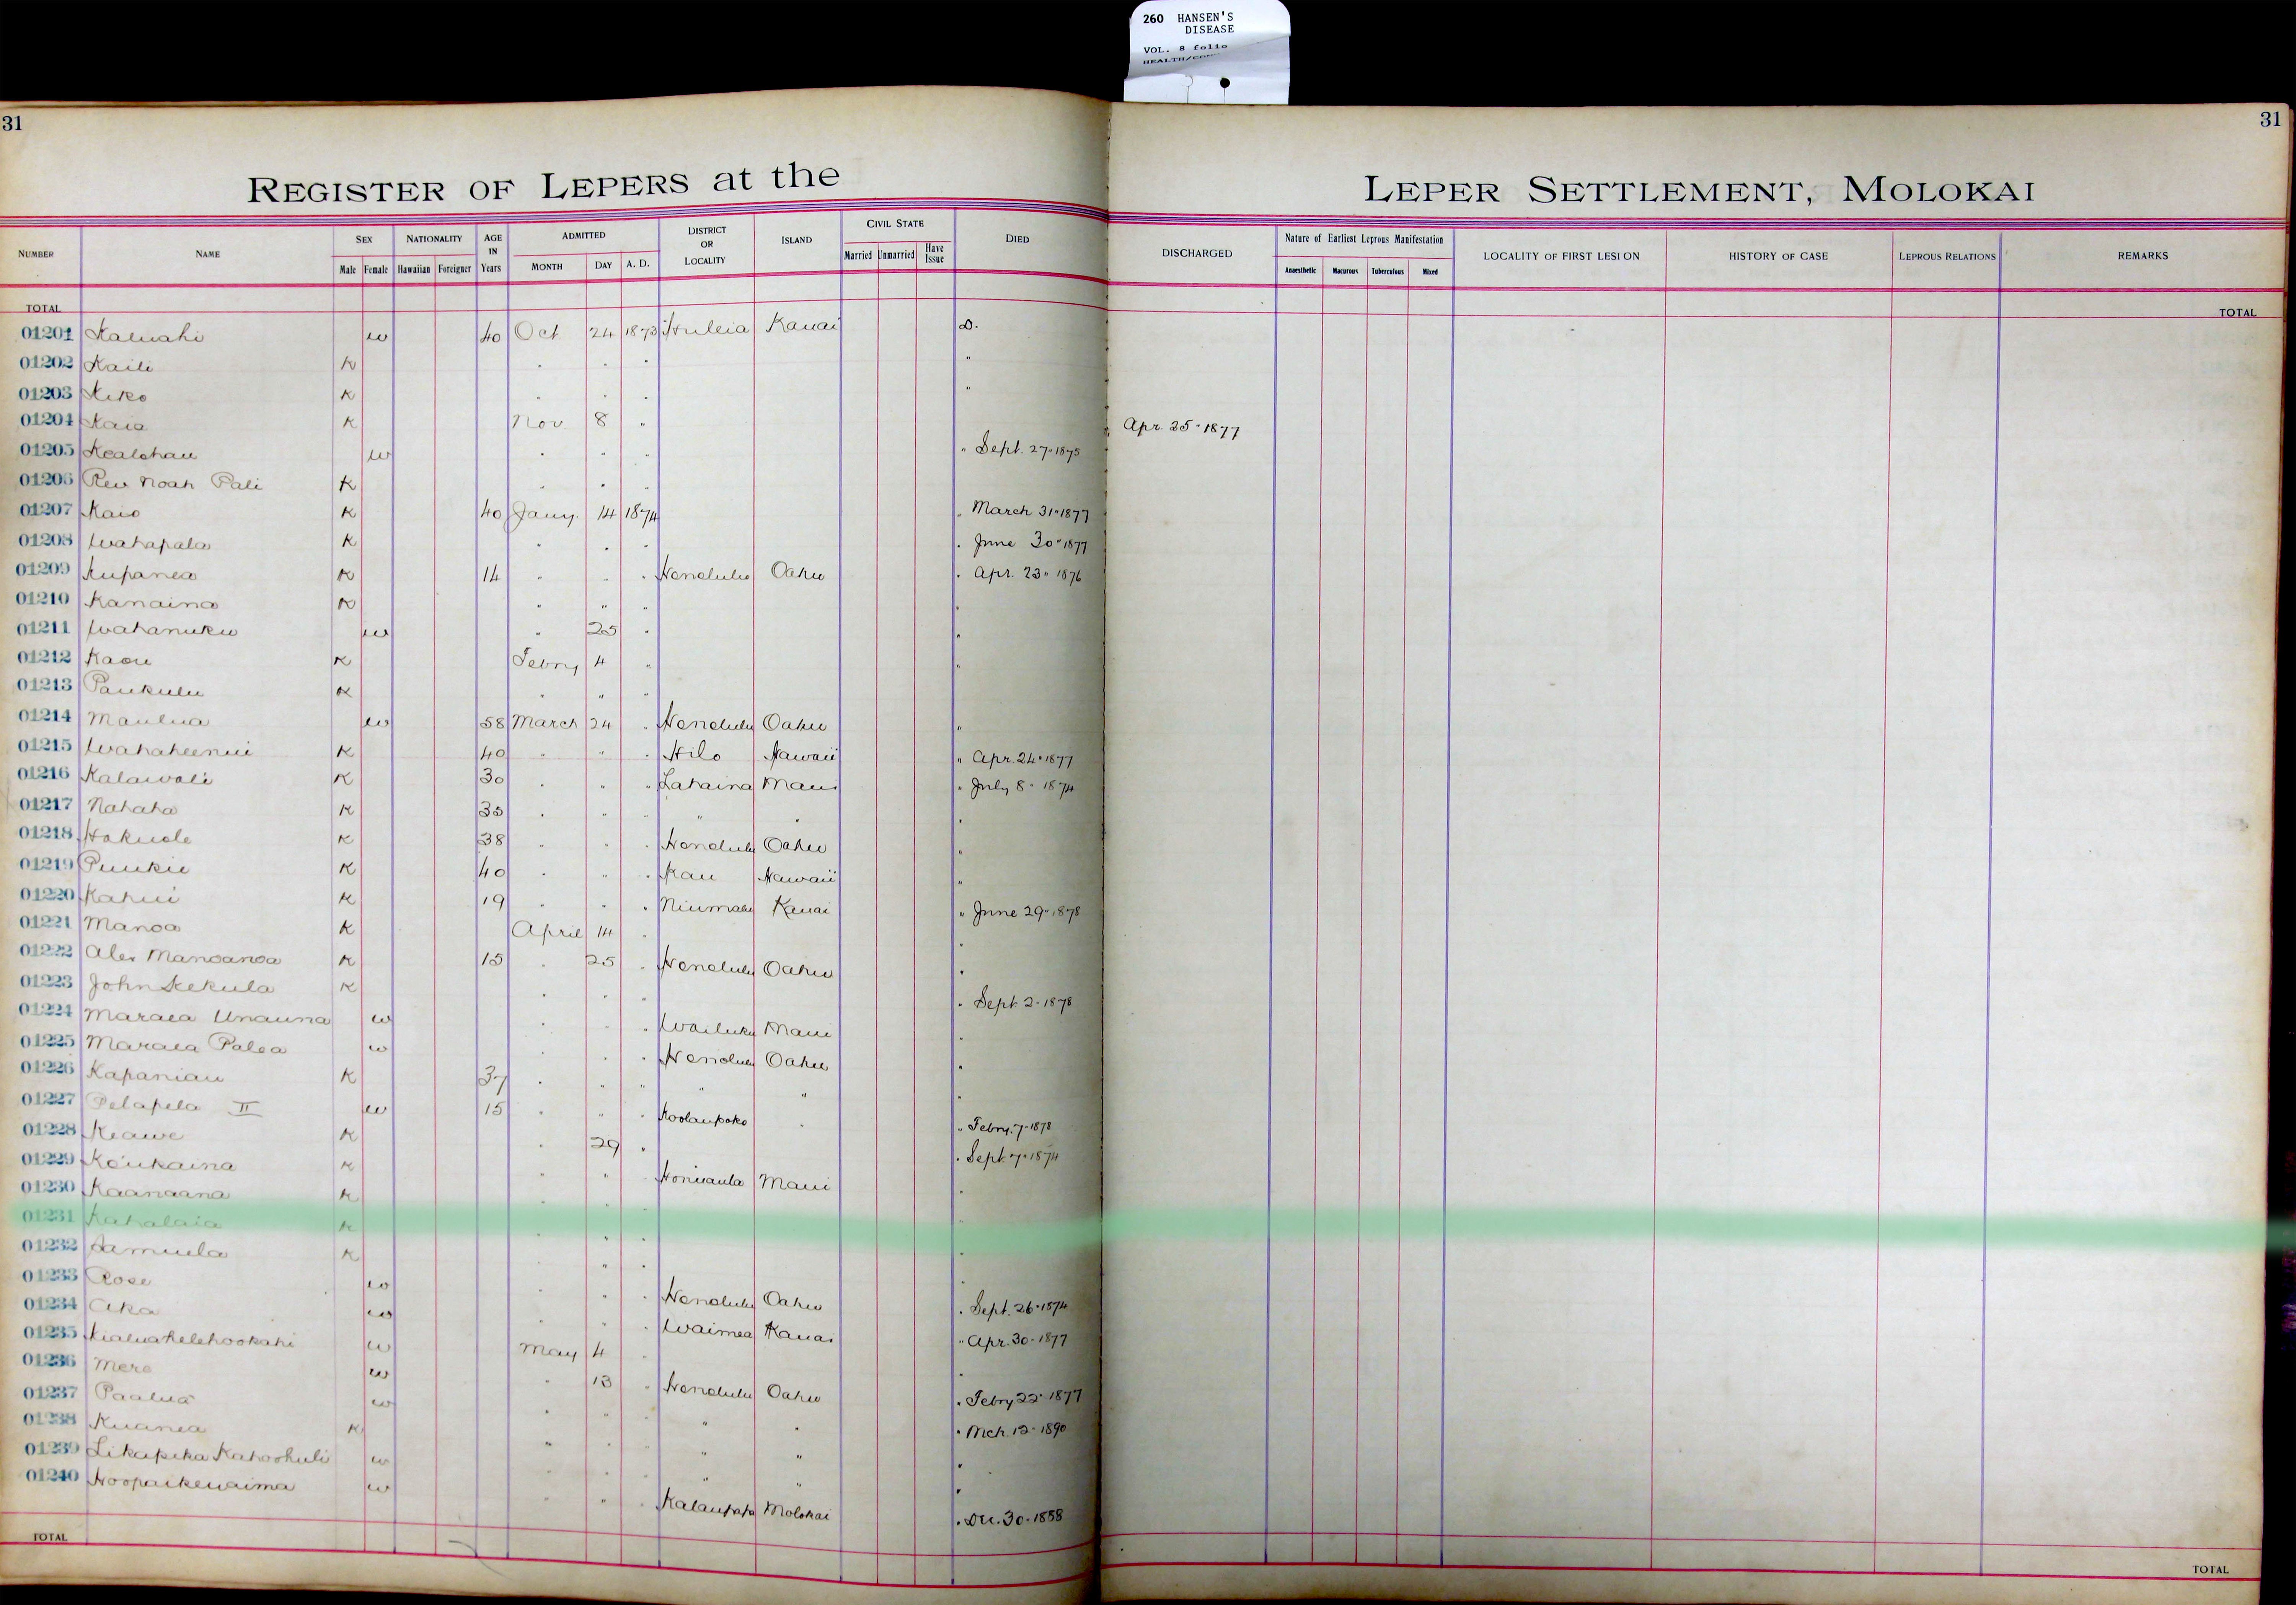 260 HANSEN'S
DISEASE
VOL. 8 folio
31
31
REGISTER OF LEPERS at the LEPER SETTLEMENT, MOLOKAI
NUMBER NAME SEX NATIONALITY AGE IN Years ADMITTED DISTRICT OR LOCALITY ISLAND CIVIL STATE DIED DISCHARGED Nature of Earliest Leprous Manifestation LOCALITY OF FIRST LESION HISTORY OF CASE LEPROUS RELATIONS REMARKS
Male Female Hawaiian Foreigner MONTH DAY A. D. Married Unmarried Have Issue Anaesthetic Macurous Tuberculous Mixed
TOTAL TOTAL
01201 Kaluahi w 40 Oct 24 1873 Huleia Kauai D.
01202 Kaili K " " " "
01203 Keko K " " " "
01204 Kaia K Nov. 8 " " Apr. 25" 1877
01205 Kealohau w " " " " Sept. 27" 1875
01206 Rev Noah Pali K " " "
01207 Kaio K 40 Jany. 14 1874 " March 31" 1877
01208 Wahapala K " " " " June 30" 1877
01209 Kupanea K 14 " " " Honolulu Oahu " Apr. 23" 1876
01210 Kanaina K " " " "
01211 Wahanuku w " 25 " "
01212 Kaou K Febry 4 " "
01213 Paukulu K " " "
01214 Maulua w 58 March 24 " Honolulu Oahu "
01215 Wahaheenui K 40 " " " Hilo Hawaii " Apr. 24" 1877
01216 Kalawali K 30 " " " Lahaina Maui " July 8" 1874
01217 Nahaha K 35 " " " " " "
01218 Hokuole K 38 " " " Honolulu Oahu "
01219 Puukie K 40 " " " Kau Hawaii "
01220 Kahui K 19 " " " Niumalu Kauai " June 29" 1878
01221 Manoa K April 14 " "
01222 Alex Manoanoa K 15 " 25 " Honolulu Oahu "
01223 John Kekula K " " " " Sept. 2" 1878
01224 Maraea Unauna w " " " Wailuku Maui "
01225 Maraea Palea w " " " Honolulu Oahu "
01226 Kapaniau K 37 " " " " " "
01227 Pelapela II w 15 " " " Koolaupoko " " Febry. 7" 1878
01228 Keawe K " 29 " " Sept. 7" 1874
01229 Keukaina K " " " Honuaula Maui "
01230 Kaanaana K " " "
01231 Kahalaia K " " "
01232 Samuela K " " "
01233 Rose w " " " Honolulu Oahu " Sept. 26" 1874
01234 Aka w " " " Waimea Kauai " Apr. 30" 1877
01235 Kialuahelehookahi w May 4 " "
01236 Mere w " 13 " Honolulu Oahu " Febry 22" 1877
01237 Paalua w " " " " " " Mch. 12" 1890
01238 Kuanea K " " " " " "
01239 Likapeka Kahoohuli w " " " " " "
01240 Hoopaikewaima w " " " Kalaupapa Molokai " Dec. 30" 1888
TOTAL TOTAL